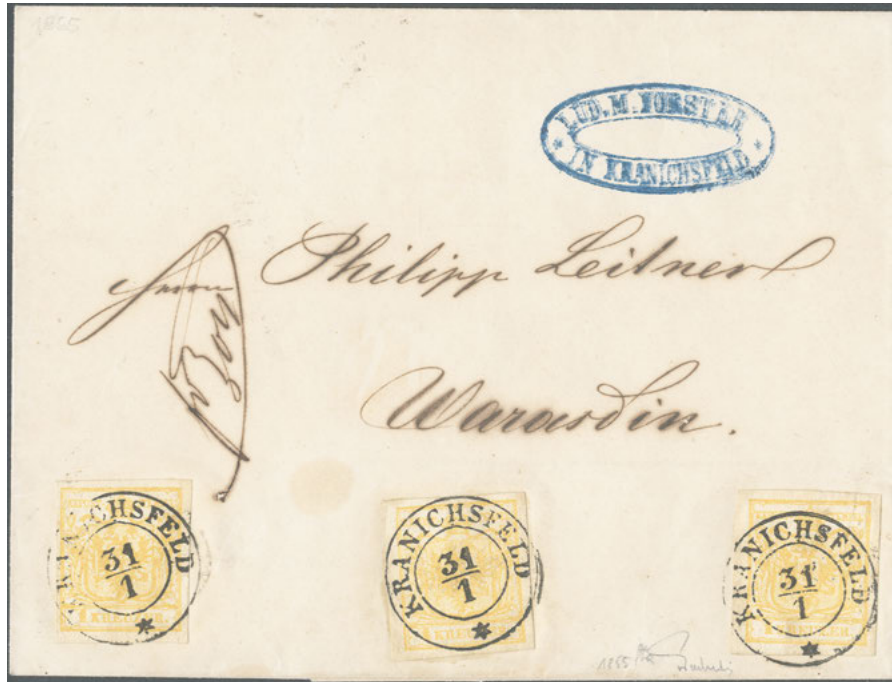 1855
LUD. M. HORSTAR
* IN KRANICHSFELD *
Herrn Philipp Leitner
Warasdin.
KRANICHSFELD
31
1
1 KREUZER.
KRANICHSFELD
31
1
1 KREUZER.
KRANICHSFELD
31
1
1 KREUZER.
1855